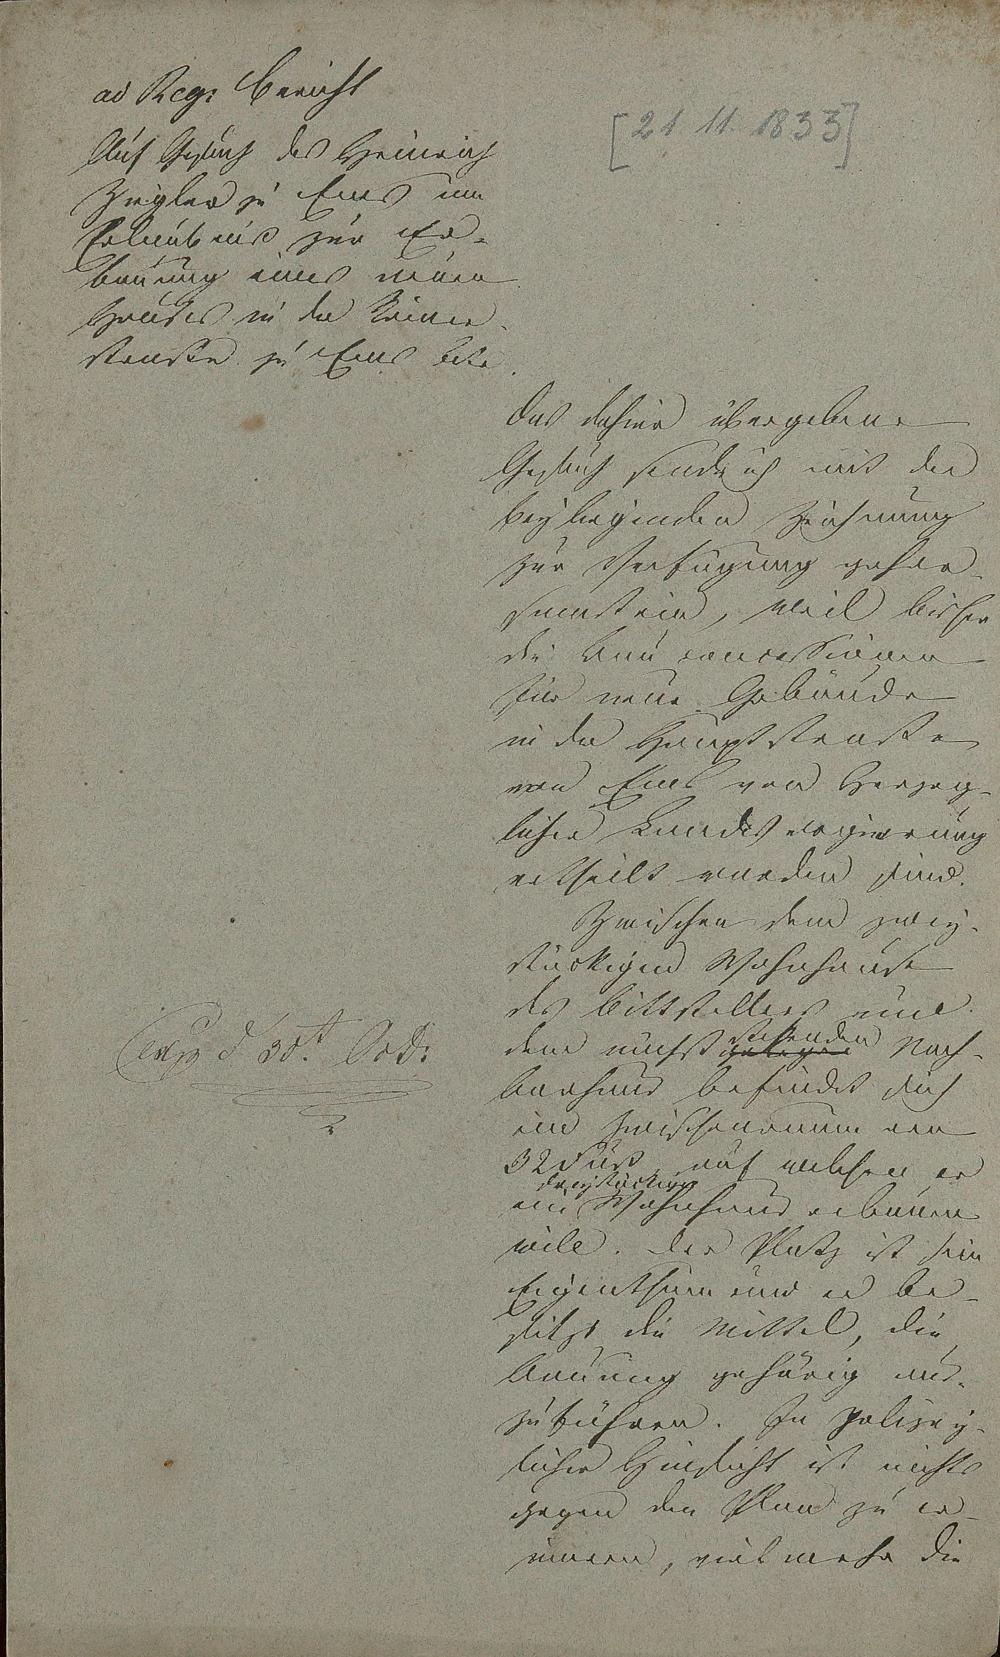 ad Reg: Bericht
[21 11. 1833]
Auf Gesuch des Heinrich
Ziegler zu Ems um
Erlaubniß zur Er-
bauung eines neuen
Hauses in der Römer-
straße zu Ems betr.
Das dahier übergebene
Gesuch sende ich mit der
beyliegenden Zeichnung
zur Verfügung gehor-
samst ein, weil bisher
die Bau concessionen
für neue Gebäude
in der Hauptstraße
von Ems von Herzog-
licher Landesregierung
ertheilt worden sind.
Zwischen dem zwey-
stöckigen Wohnhause
des Bittstellers und
dem nächst stehenden Nach-
barhaus befindet sich
ein Zwischenraum von
32 Fuß, auf welchen er
ein dreystöckiges Wohnhaus erbauen
will. Der Platz ist sein
Eigenthum und er be-
sitzt die Mittel, die
Bauung gehörig aus-
zuführen. In polizey-
licher Hinsicht ist nichts
gegen den Plan zu er-
innern, viel mehr die